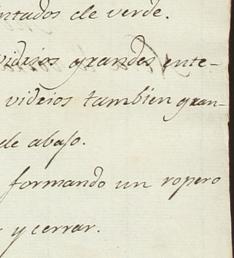 ntados de verde.
vidrios grandes ente-
videios tambien gran-
de abajo.
formando un ropero
y cerrar.